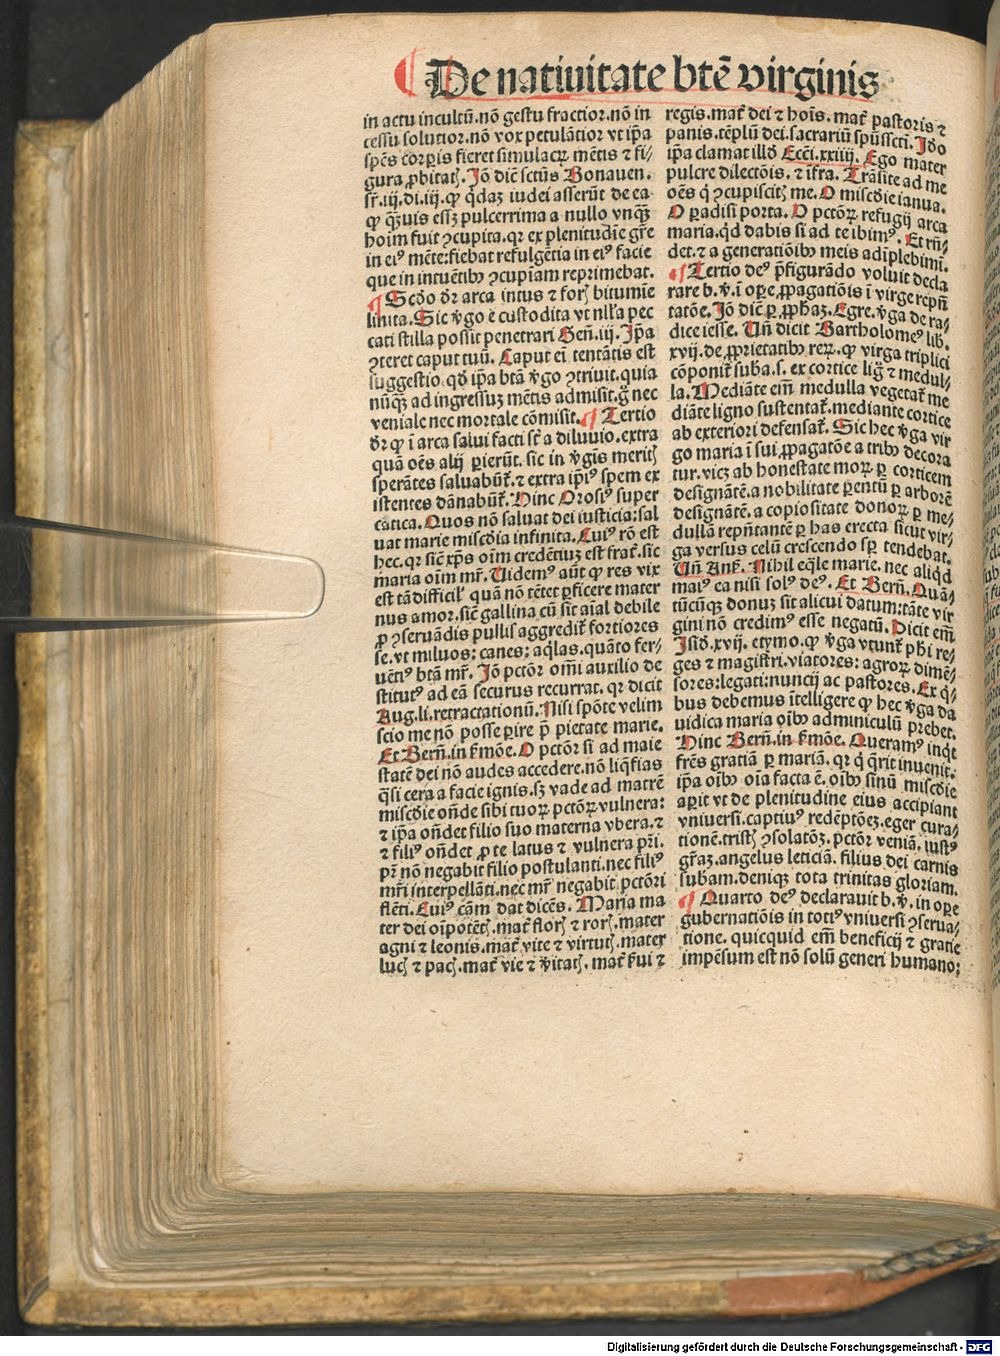 De natiuitate btē virginis
in actu incultū. nō gestu fractior. nō in
cessu solutior. nō vox petulātior vt ip̄a
spēs corpis fieret simulacꝝ mētis ⁊ fi⸗
gura ꝓbitatꝭ. Jō dic̄ sctūs Bonauen.
sr̄. iij. di. iij. ꝙ q̄daꝫ iudei asserūt de ea
ꝙ q̄ꝫuis esſꝫ pulcerrima a nullo vnqꝫ
hoīm fuit ꝯcupita. qꝛ ex plenitudīe gr̄e
in eiꝰ mēte: fiebat refulgētia in eiꝰ facie
que in intuētibꝰ ꝯcupīam reprimebat.
¶ Scd̄o dr̄ arca intus ⁊ forꝭ bitumīe
linita. Sic v̄go ē custodita vt nll̄a pec
cati stilla possit penetrari Gen̄. iij. Jp̄a
ꝯteret caput tuū. Caput eī tentātis est
suggestio. qd̄ ip̄a btā v̄go ꝯtriuit. quia
nūqꝫ ad ingressuꝫ mētis admisit. g̊ nec
veniale nec mortale cōmisit. ¶ Tertio
dr̄ ꝙ ī arca salui facti st̄ a diluuio. extra
quā oēs alij ꝑierūt. sic in v̄gis meritꝭ
sperātes saluabūt̄. ⁊ extra ip̄iꝰ spem ex
istentes dānabūt̄. Hinc Orosiꝰ super
cātica. Quos nō saluat dei iusticia: sal
uat marie miscd̄ia infinita. Cuiꝰ rō est
hec. qꝛ sic̄ xp̄s oīm credētiuꝫ est frat̄. sic
maria oīm mr̄. Uidemꝰ aūt ꝙ res vix
est tā difficilꝭ quā nō tētet ꝑficere mater
nus amor. sic̄ gallina cū sit aīal debile
ꝓ ꝯseruādis pullis aggredit̄ fortiores
se. vt miluos: canes: aq̄las. quāto fer⸗
uētiꝰ btā mr̄. Jō pctōr om̄i auxilio de
stitutꝰ ad eā securus recurrat. qꝛ dicit
Aug. li. retractationū. Nisi spōte velim
scio me nō posse ꝑire p̄ pietate marie.
Et Bern̄. in ẜmōe. O pctōr si ad maie
statē dei nō audes accedere. nō liq̄fias
q̄si cera a facie ignis. sꝫ vade ad matrē
miscd̄ie on̄de sibi tuoꝝ pctōꝝ vulnera:
⁊ ip̄a on̄det filio suo materna vbera. ⁊
⁊ filiꝰ on̄det ꝓ te latus ⁊ vulnera pr̄i.
pr̄ nō negabit filio postulanti. nec filiꝰ
mr̄i interpellāti. nec mr̄ negabit pctōri
flēti. Cuiꝰ cām dat dicēs. Maria ma
ter dei oīpotētꝭ. mat̄ florꝭ ⁊ rorꝭ. mater
agni ⁊ leonis. mat̄ vite ⁊ virtutꝭ. mater
lucꝭ ⁊ pacꝭ. mat̄ vie ⁊ v̄itatꝭ. mat̄ ẜui ⁊
regis. mat̄ dei ⁊ hoīs. mat̄ pastoris ⁊
panis. tēplū dei. sacrariū spūssctī. Jdo
ip̄a clamat illd̄ Ecc̄i. xxiiij. Ego mater
pulcre dilectōis. ⁊ ifra. Trāsite ad me
oēs q̇ ꝯcupiscitꝭ me. O miscd̄ie ianua.
O paradisi porta. O pctōꝝ refugiū arca
maria. qd̄ dabis si ad te ibimꝰ. Et rn̄⸗
det. ⁊ a generatiōibꝰ meis adīplebimī.
¶ Tertio deꝰ p̄figurādo voluit decla
rare b. v̄. ī oꝑe ꝓpagatiōis ī virge repn̄
tatōe. Jō dic̄ ꝑ ꝓphaꝫ. Egre. v̄ga de ra⸗
dice iesse. Un̄ dicit Bartholomeꝰ lib.
xvij. de ꝓprietatibꝰ reꝝ. ꝙ virga triplici
cōponit̄ suba. s. ex cortice ligꝫ ⁊ medul⸗
la. Mediāte em̄ medulla vegetat̄ me
diāte ligno sustentat̄. mediante cortice
ab exteriori defensat̄. Sic hec v̄ga vir
go maria ī sui ꝓpagatōe a tribꝰ decora
tur. vicꝫ ab honestate moꝝ ꝑ corticem
designātē. a nobilitate parentū ꝑ arborē
designātē. a copiositate donoꝝ ꝑ me⸗
dullā repn̄tantē ꝑ has erecta sicut vir⸗
ga versus celū crescendo sp̄ tendebat.
Un̄ Anẜ. Nihil eq̄le marie. nec aliqd̄
maiꝰ ea nisi solꝰ deꝰ. Et Bern̄. Quā⸗
tūcūqꝫ donuꝫ sit alicui datum: tāte vir
gini nō credimꝰ esse negatū. Dicit em̄
Jsid̄. xvij. etymo. ꝙ v̄ga vtunt̄ phi re⸗
ges ⁊ magistri. viatores: agroꝝ dimē⸗
sores: legati: nuncij ac pastores. Ex q̇⸗
bus debemus ītelligere ꝙ hec v̄ga da
uidica maria oībꝰ adminiculū prebet.
Hinc Bern̄. in ẜmōe. Queramꝰ inqt̄
frēs gratiā ꝑ mariā. qꝛ q̄ q̄rit inuenit.
ip̄a oībꝰ oīa facta ē. oībꝰ sinū miscd̄ie
aꝑit vt de plenitudine eius accipiant
vniuersi. captiuꝰ redēptōeꝫ. eger cura⸗
tionē. tristꝭ ꝯsolatōꝫ. pctōr veniā. iustꝰ
gr̄aꝫ. angelus leticiā. filius dei carnis
subam. deniqꝫ tota trinitas gloriam.
¶ Quarto deꝰ declarauit b. v̄. in oꝑe
gubernatiōis in totiꝰ vniuersi ꝯserua⸗
tione. quicquid em̄ beneficij ⁊ gratie
impēsum est nō solū generi humano;
Digitalisierung gefördert durch die Deutsche Forschungsgemeinschaft - DFG